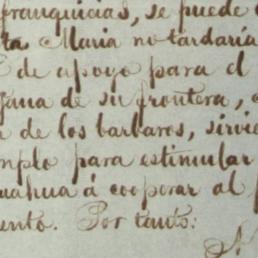 franquicias, se puede
ta Maria no tardaría
de apoyo para el
gana de su frontera,
de los barbaros, sirvie
mplo para estimular
uahua á cooperar al
ento. Por tanto: